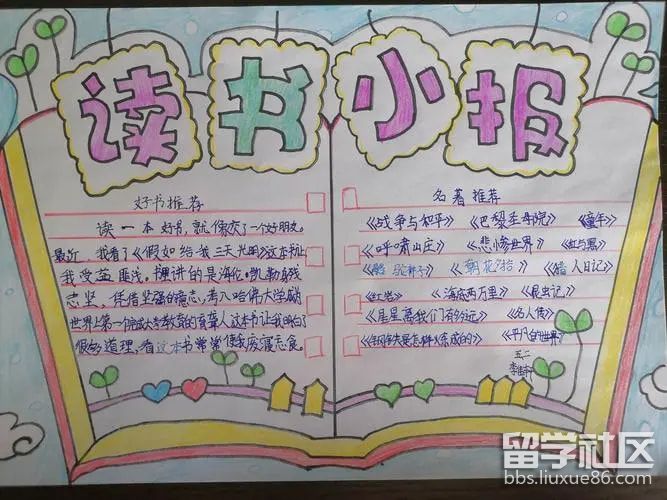 读书小报
好书推荐
读一本好书,就像交了一个好朋友。
最近,我看了《假如给我三天光明》这本书,让
我受益匪浅。书里讲的是海伦·凯勒身残
志坚,凭借坚强的意志,考入哈佛大学,成
世界上第一个完成大学教育的盲聋人,这本书让我明白了
很多道理,看这本书常常使我废寝忘食。
名著推荐
《战争与和平》《巴黎圣母院》《童年》
《呼啸山庄》《悲惨世界》《红与黑》
《骆驼祥子》《朝花夕拾》《猎人日记》
《红岩》《海底两万里》《昆虫记》
《星星离我们有多远》《名人传》
《钢铁是怎样炼成的》《平凡的世界》
五二
留学社区
bbs.liuxue86.com